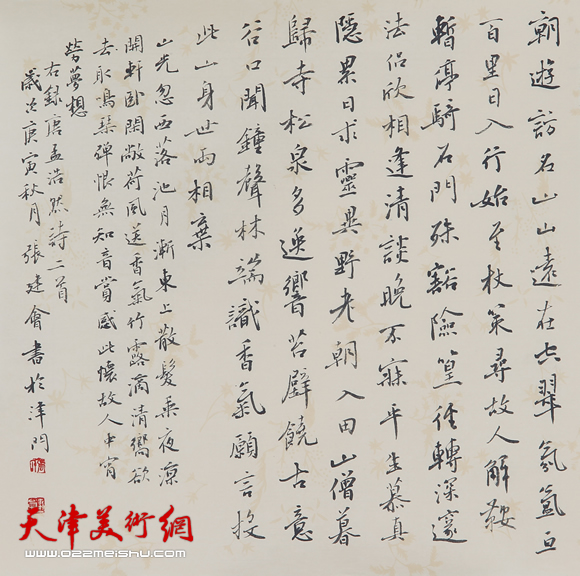 朝遊訪名山山遠在空翠氛氳亘
百里日入行始至杖策尋故人解鞍
暫停騎石門殊豁險篁径轉深邃
法侣欣相逢清談晚不寐平生慕真
隱累日求靈異野老朝入田山僧暮
歸寺松泉多逸響苔壁饒古意
谷口聞鐘聲林端識香氣願言投
此山身世兩相棄
山光忽西落池月漸東上散髮乘夜涼
開軒卧閑敞荷風送香氣竹露滴清響欲
去取鳴琴彈恨無知音賞感此懷故人中宵
勞夢想
右録唐孟浩然詩二首
歲次庚寅秋月張建會書於津門
天津美術網
www.022meishu.com